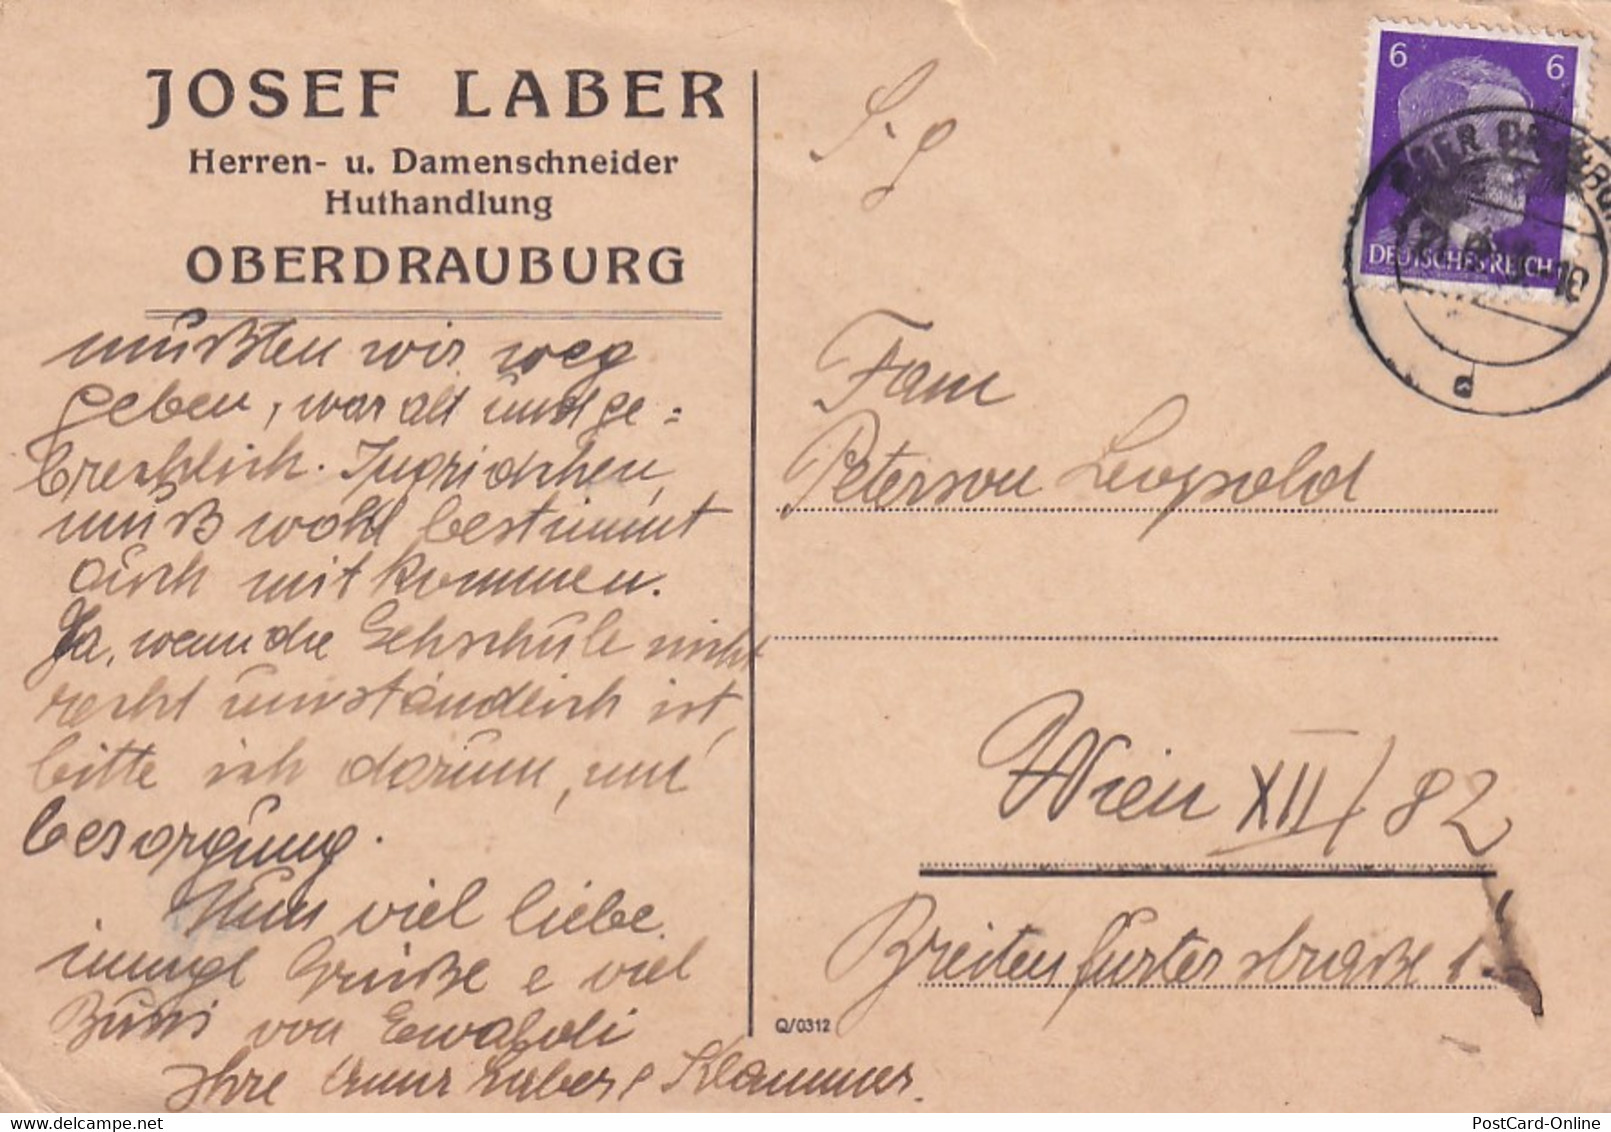 JOSEF LABER
Herren- u. Damenschneider
Huthandlung
OBERDRAUBURG
mußten wir weg
geben, war alt und ge=
brechlich. Ingridchen,
muß wohl bestimmt
auch mit kommen.
Ja, wenn die Gehschule nicht
recht umständlich ist,
bitte ich darum, um
besorgung.
Nun viel liebe
innige Grüße e viel
Bussi von
Ihre Laber e Klammer.
S. g
Fam
Peterson Leopold
Wien XII/82
Breitenfurterstraße 1
Q/0312
6 6
DEUTSCHES REICH
d
PostCard-Online